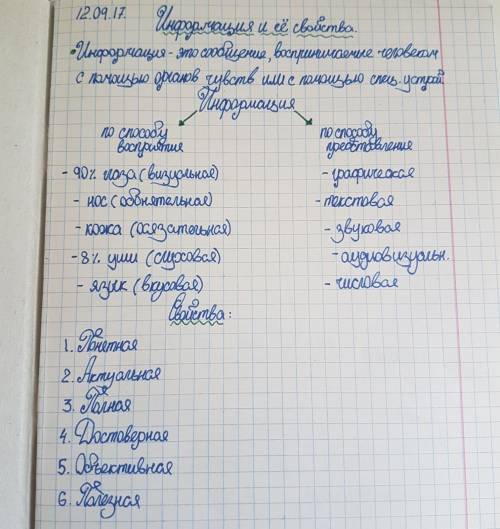 12.09.17.
Информация и её свойства.
• Информация - это сообщение, воспринимаемые человеком
с помощью органов чувств или с помощью спец. устрой
Информация
по способу восприятия
- 90% глаза (визуальная)
- нос (обонятельная)
- кожа (осязательная)
- 8% уши (слуховая)
- язык (вкусовая)
по способу представления
- графическая
- текстовая
- звуковая
- аудиовизуальн.
- числовая
Свойства:
1. Понятная
2. Актуальная
3. Полная
4. Достоверная
5. Объективная
6. Полезная